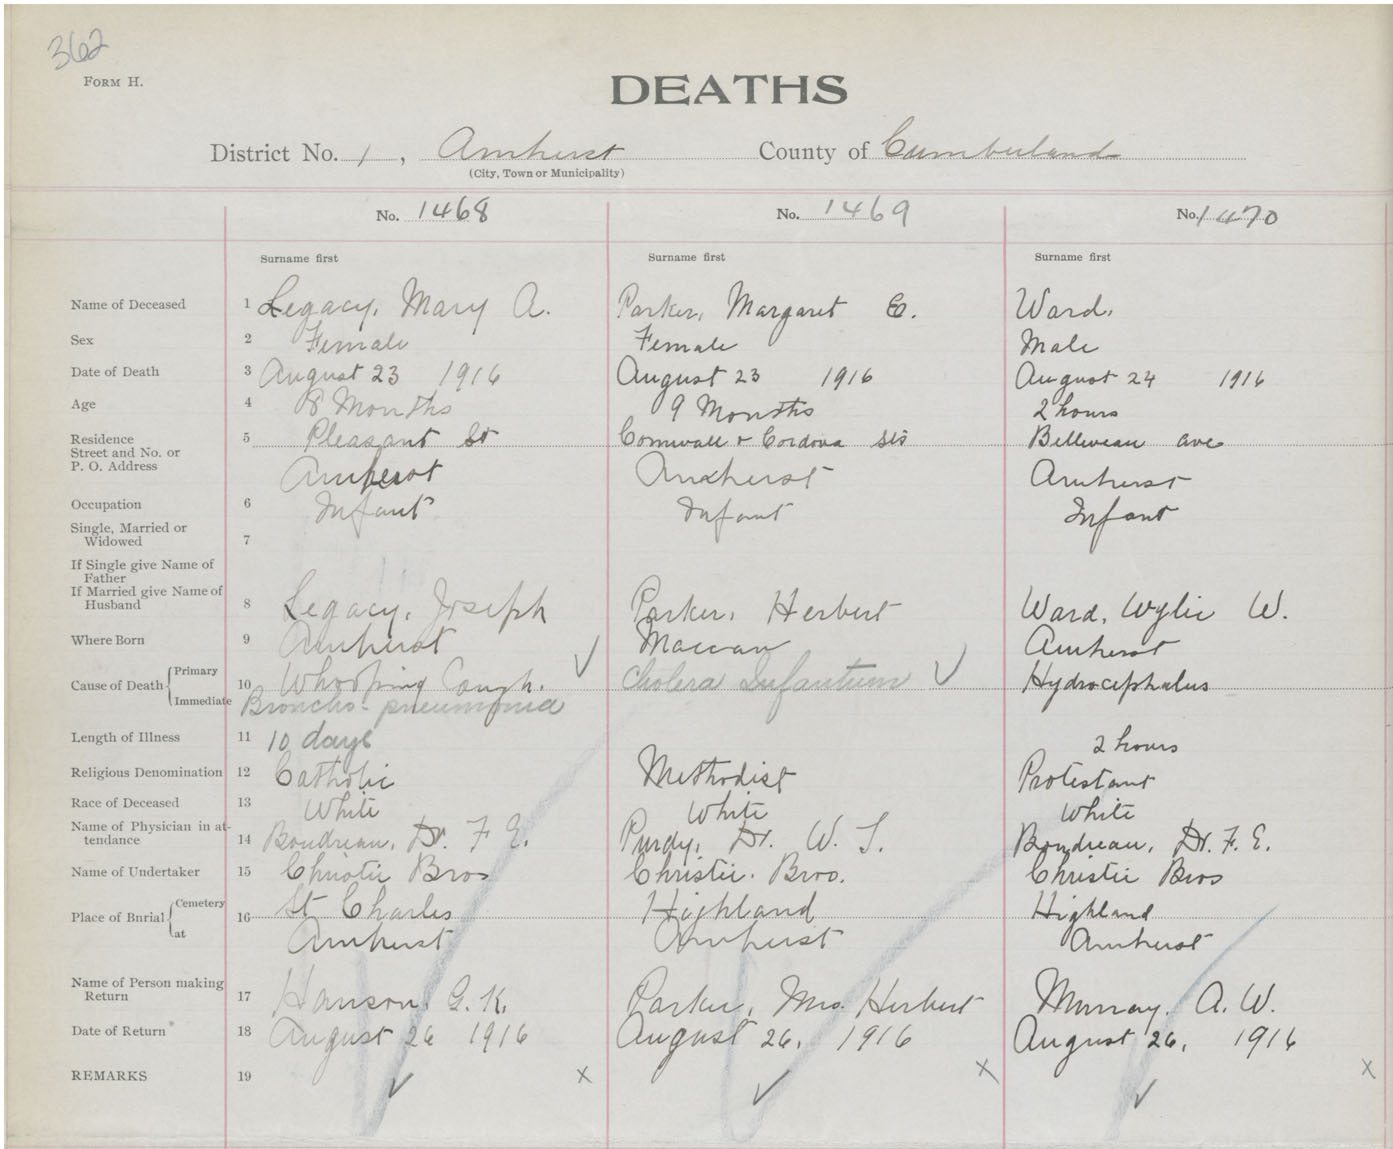 362
FORM H.
DEATHS
District No. 1, Amherst County of Cumberland
(City, Town or Municipality)
No. 1468 No. 1469 No. 1470
Surname first Surname first Surname first
Name of Deceased 1 Legacy, Mary A. Parker, Margaret E. Ward.
Sex 2 Female Female Male
Date of Death 3 August 23 1916 August 23 1916 August 24 1916
Age 4 8 Months 9 Months 2 hours
Residence
Street and No. or
P. O. Address
5 Pleasant St Cornwall & Cordova Sts Belliveau ave
Amherst Amherst Amherst
Occupation 6 Infant Infant Infant
Single, Married or
Widowed 7
If Single give Name of
Father
If Married give Name of
Husband 8 Legacy, Joseph Parker, Herbert Ward, Wylie W.
Where Born 9 Amherst Maccan Amherst
Cause of Death Primary
Immediate
10 Whooping Cough. Cholera Infantum Hydrocephalus
Broncho-pneumonia
Length of Illness 11 10 days 2 hours
Religious Denomination 12 Catholic Methodist Protestant
Race of Deceased 13 White White White
Name of Physician in at-
tendance 14 Boudreau, Dr. F. E. Purdy, Dr. W. T. Boudreau, Dr. F. E.
Name of Undertaker 15 Christie Bros Christie. Bros. Christie Bros
Place of Bnrial Cemetery
at
16 St Charles Highland Highland
Amherst Amherst Amherst
Name of Person making
Return 17 Hanson, G. K. Parker, Mrs. Herbert Murray. A. W.
Date of Return 18 August 26 1916 August 26, 1916 August 26, 1916
REMARKS 19 x x x